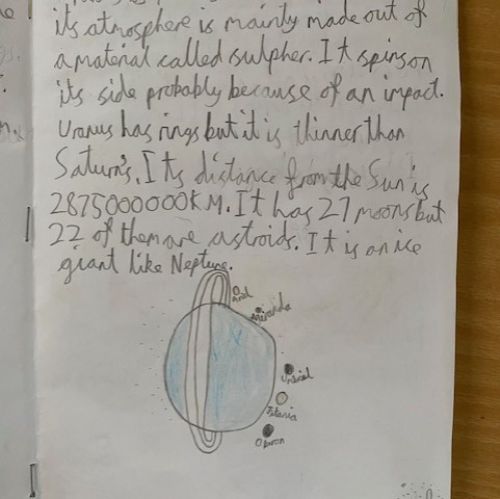 its atmosphere is mainly made out of
a material called sulpher. It spins on
its side probably because of an impact.
Uranus has rings but it is thinner than
Saturn's. Its distance from the Sun is
2875000000KM. It has 27 moons but
22 of them are astroids. It is an ice
giant like Neptune.
Miranda
Titania